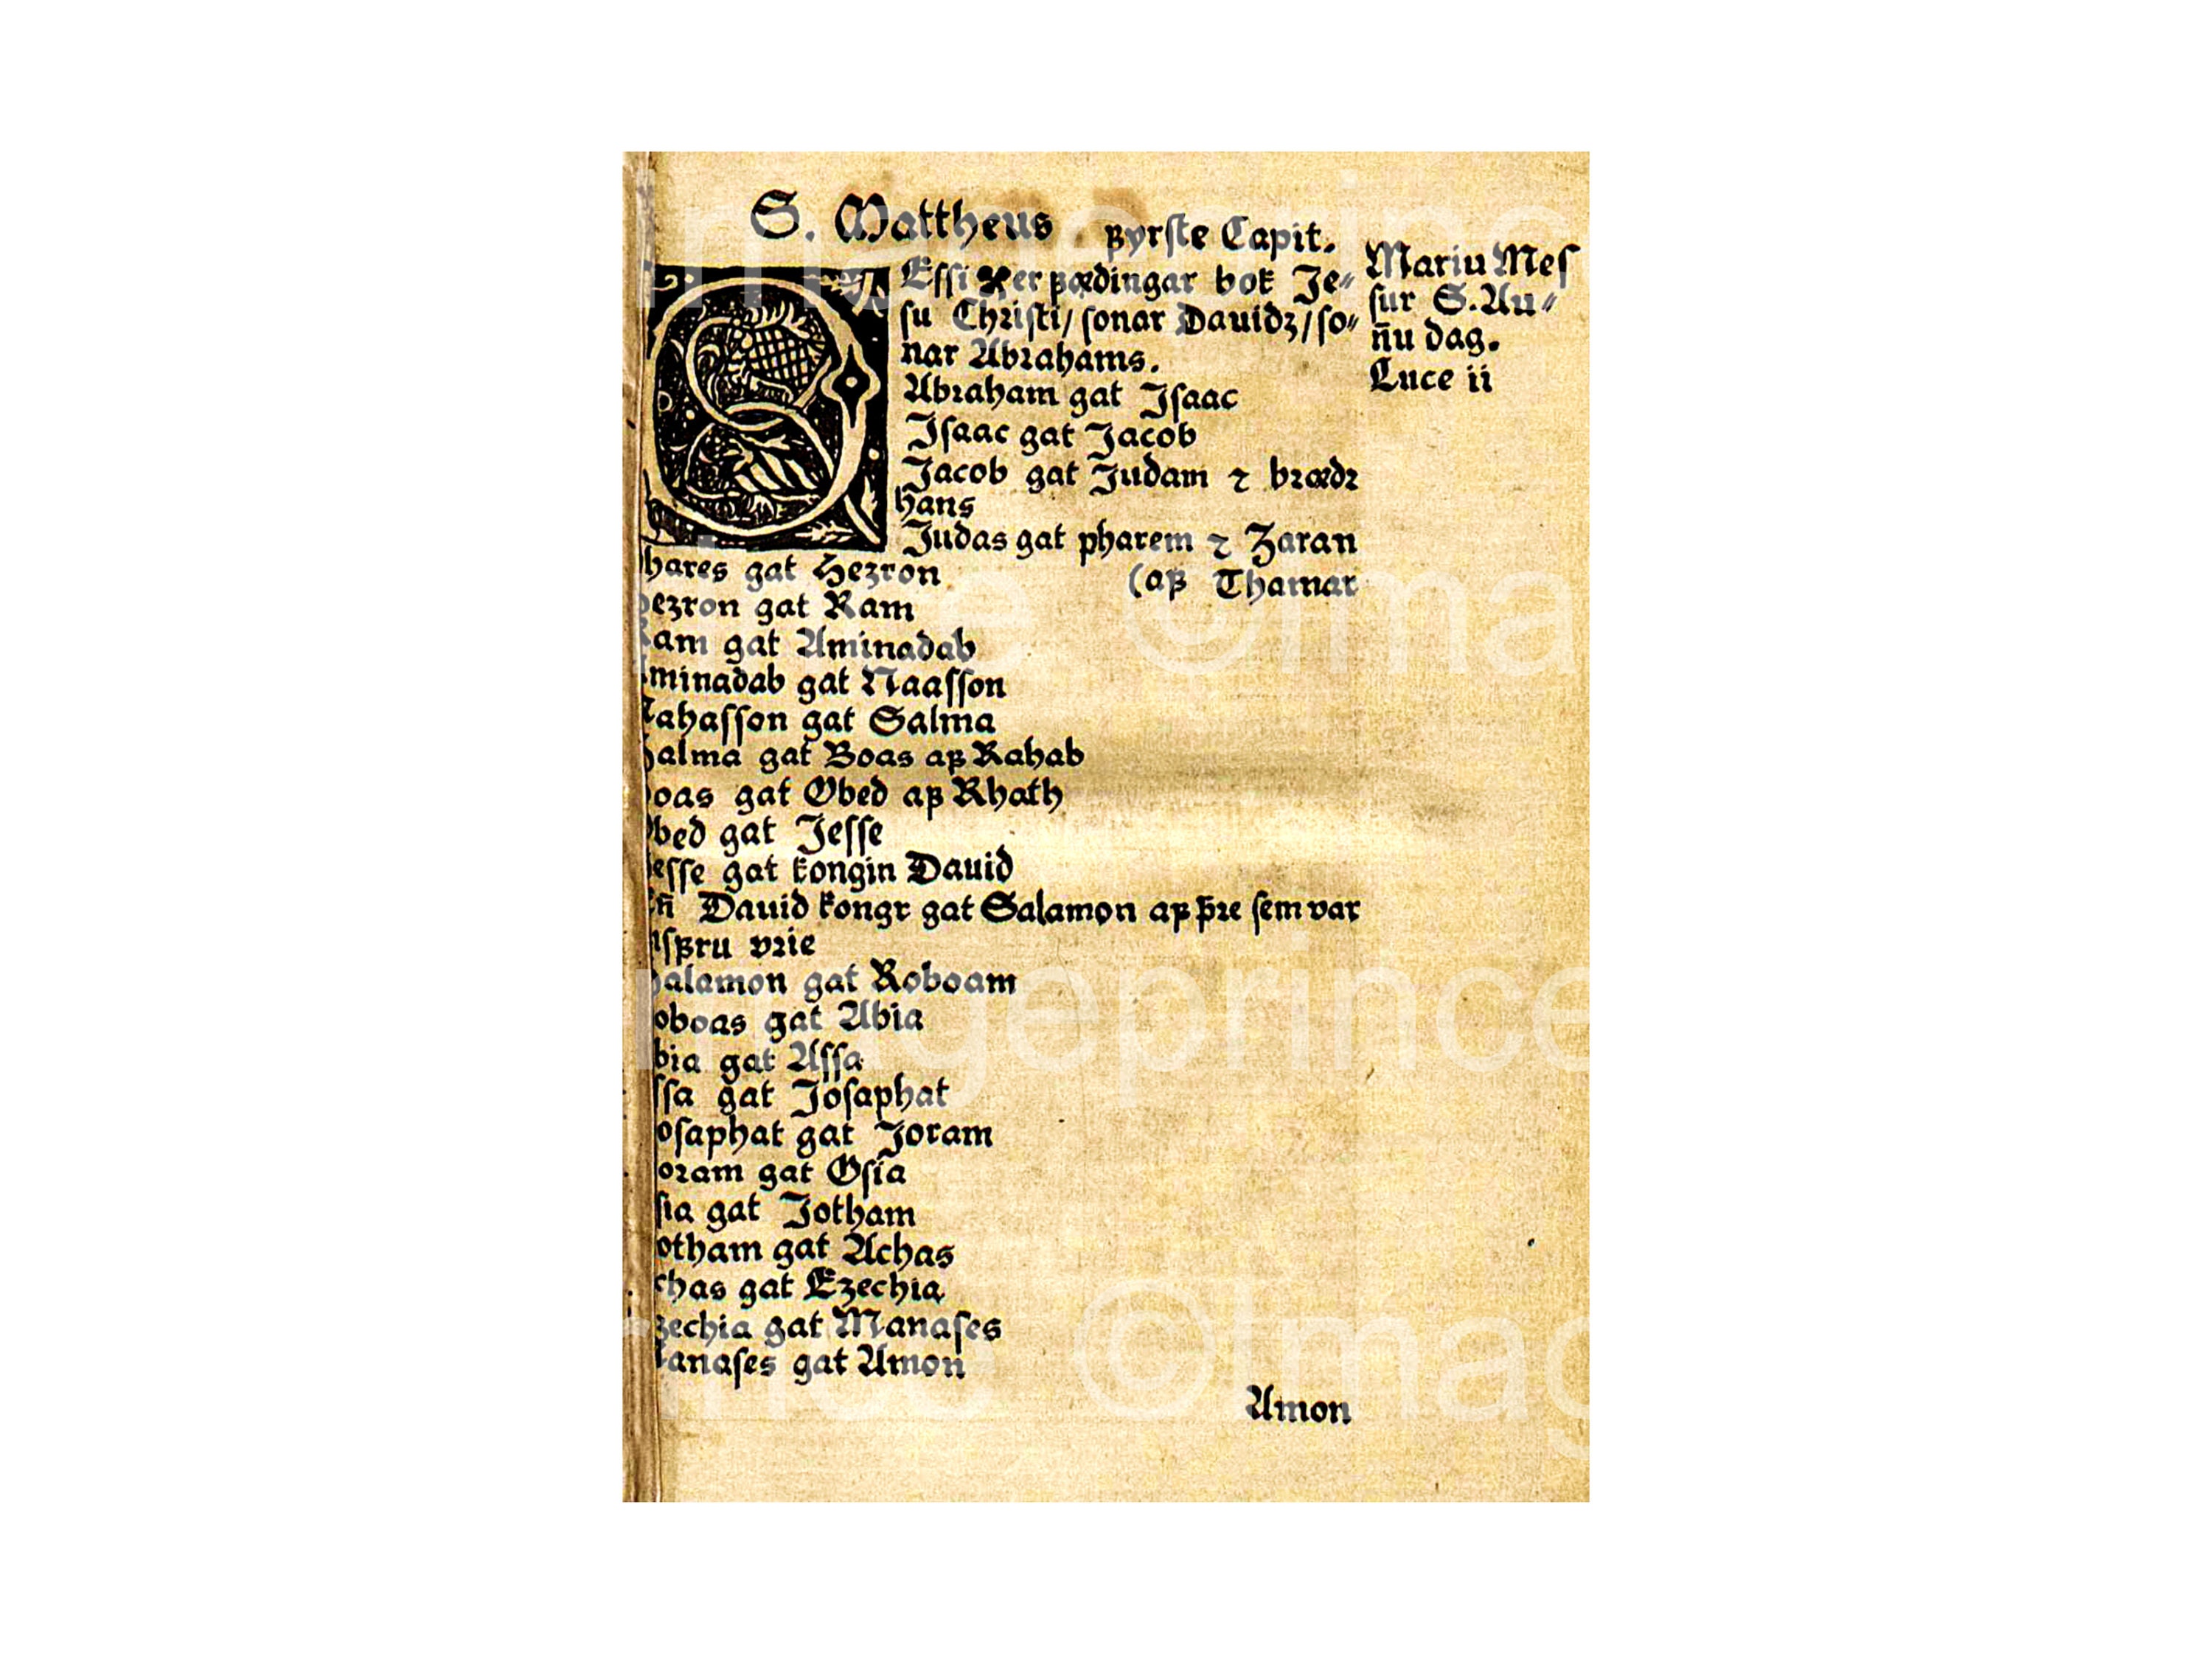 S. Mattheus ꝼyrſte Capit.
Eſſi er ꝼædingar bok Je⸗
ſu Chriſti/ ſonar Dauidz/ſo⸗
nar Abrahams.
Abraham gat Jſaac
Jſaac gat Jacob
Jacob gat Judam ⁊ brædr
hans
Judas gat pharem ⁊ Zaran
hares gat Hezron (aꝼ Thamar
ezron gat Ram
am gat Aminadab
minadab gat Naaſſon
ahaſſon gat Salma
alma gat Boas aꝼ Rahab
oas gat Obed aꝼ Rhath
bed gat Jeſſe
eſſe gat kongin Dauid
n̄ Dauid kongr gat Salamon aꝼ þr̄e ſem var
ſꝼru vrie
alamon gat Roboam
oboas gat Abia
bia gat Aſſa
ſſa gat Joſaphat
oſaphat gat Joram
oram gat Oſia
ſia gat Jotham
otham gat Achas
chas gat Ezechia
zechia gat Manaſes
anaſes gat Amon
Amon
Mariu Meſ
ſur S. Au⸗
n̄u dag.
Luce ii